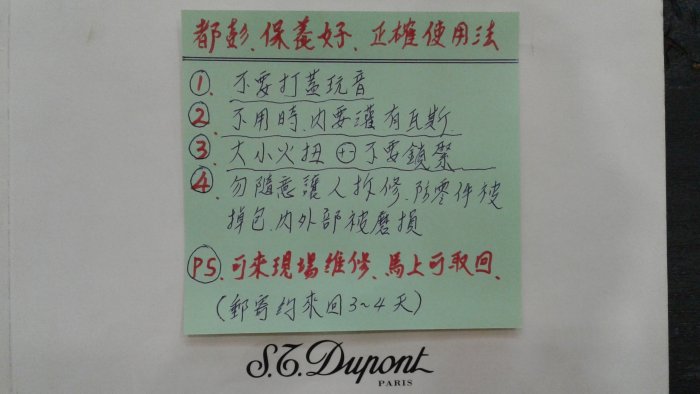 都彭、保養好、正確使用法
①、不要打蓋玩音
②、不用時、內要灌有瓦斯
③、大小火扭⊕⊖不要鎖緊
④、勿隨意讓人拆修、防零件被
掉包、內外部被磨損
PS、可來現場維修、馬上可取回、
(郵寄約來回3~4天)
S.T. Dupont
PARIS